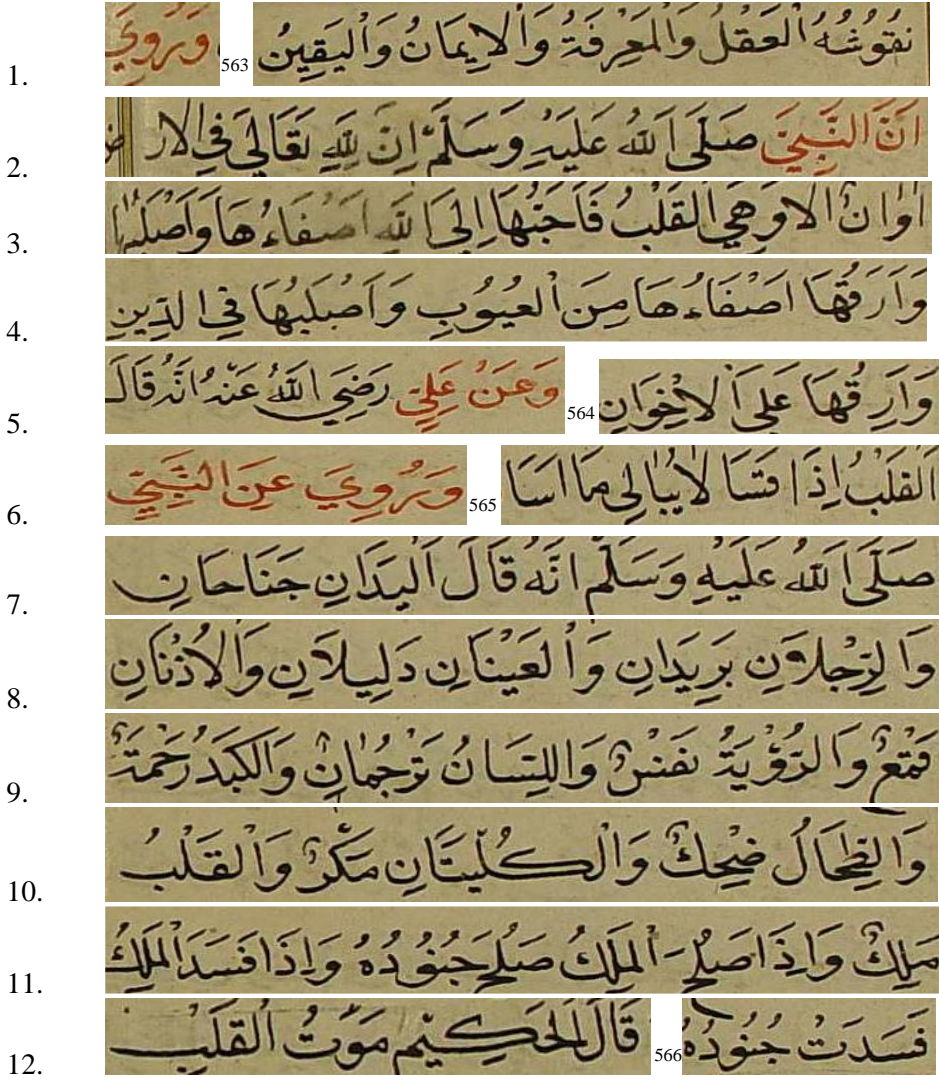 1. نُقُوشُهُ الْعَقْلُ وَالْمَعْرِفَةُ وَالْإِيمَانُ وَالْيَقِينُ 563 وَرُوِيَ
2. اَنَّ النَّبِيَّ صَلَّى اللهُ عَلَيْهِ وَسَلَّمْ اِنَّ لِلَّهِ تَعَالَى فِي الْارض
3. اَوَانٌ اَلَا وَهِيَ الْقَلْبُ فَاَحَبُّهَا اِلَى اللهِ اَصْفَاءُهَا وَاَصْلَبُهَا
4. وَاَرَقُّهَا اَصْفَاءُهَا مِنَ الْعُيُوبِ وَاَصْلَبُهَا فِي الدِّينِ
5. وَاَرَقُّهَا عَلَى الْاِخْوَانِ 564 وَعَنْ عَلِيٍّ رَضِيَ اللهُ عَنْهُ اَنَّهُ قَالَ
6. اَلْقَلْبُ اِذَا قَسَا لَا يُبَالِي مَا اَسَا 565 وَيُرْوِيَ عَنِ النَّبِيِّ
7. صَلَّى اللهُ عَلَيْهِ وَسَلَّمْ اَنَّهُ قَالَ اَلْيَدَانِ جَنَاحَانِ
8. وَالرِّجْلَانِ بَرِيدَانِ وَالْعَيْنَانِ دَلِيلَانِ وَالْاُذُنَانِ
9. قَمْعٌ وَالرُّؤْيَةُ نَفَسٌ وَاللِّسَانُ تَرْجُمَانٌ وَالْكَبَدُ رَحْمَةٌ
10. وَالطِّحَالُ ضِحِكٌ وَالْكُلْيَتَانِ مَكْرٌ وَالْقَلْبُ
11. مَلِكٌ وَاِذَا صَلُحَ الْمَلِكُ صَلُحَ جُنُودُهُ وَاِذَا فَسَدَ الْمَلِكُ
12. فَسَدَتْ جُنُودُهُ 566 قَالَ الْحَكِيْمُ مَوْتُ الْقَلْبِ